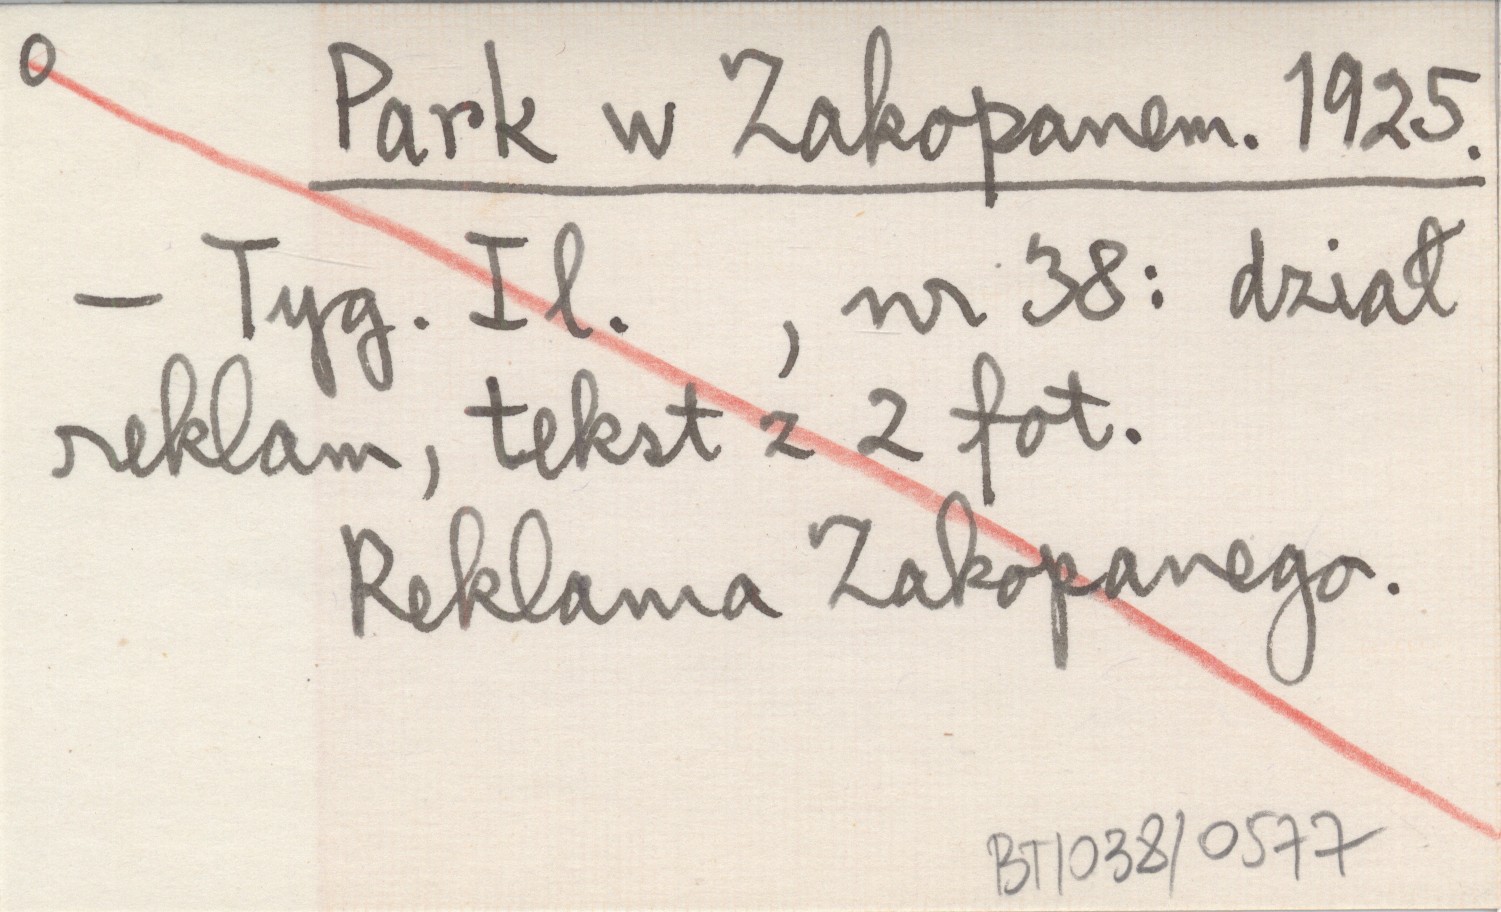 o Park w Zakopanem. 1925.
— Tyg. Il. , nr 38: dział
reklam, tekst z 2 fot.
Reklama Zakopanego.
BT/038/0577